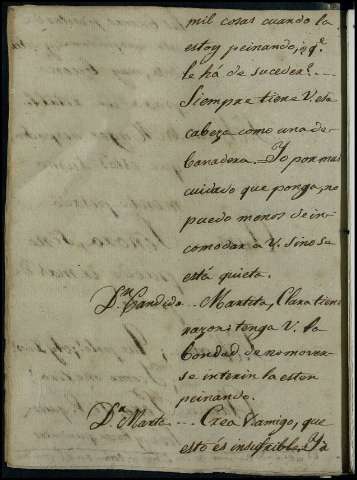 mil cosas cuando la
estoy peinando, q.e
le há de suceder? ...
Siempre tiene V. esa
cabeza como una de-
banadera. Yo por mas
cuidado que ponga, no
puedo menos de in-
comodar a V. sino se
está quieta.
D.n Candido... Martita, Clara tiene
razon: tenga V. la
bondad de no mover-
se interin la esten
peinando.
D.a Marta.... Crea V. amigo, que
esto és insufrible. Ya